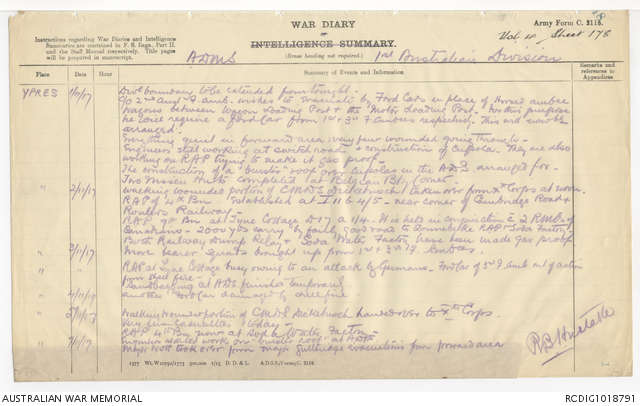 WAR DIARY
or
INTELLIGENCE SUMMARY.
(Erase heading not required.)
Army Form C. 2118.
Sheet 178
Instructions regarding War Diaries and Intelligence
Summaries are contained in F. S. Regs., Part II.
and the Staff Manual respectively. Title pages
will be prepared in manuscript.
ADMS 1st Australian Division
Place Date Hour Summary of Events and Information Remarks and references to Appendices
YPRES 1/11/17 boundary to be extended
wishes to evacuate by Ford Cars in place of Horsed ambce
Wagons between Wagon Loading Post & the Motor Loading Post. For this purpose
he will require a Ford Car from 1st & 3rd F Ambces respectively. This will now be
arranged.
Everything quiet in forward area, very few wounded going through.
Engineers still working at switch road & construction of cupolas. They are also
working on RAP trying to make it gas proof.
The construction of a "burster" roof over cupolas in the ADS arranged for.
Two Nissen Huts completed at Belgian
" 2/11/17 Walking wounded portion of C.M.D.S Dickebusch taken over from Xth Corps at noon.
RAP of 4th Bn established at I 11 b 4/5 - near corner of Cambridge Road &
Roulers Railway.
RAP 9th Bn at Tyne Cottage D17 a 1/4. It is held in conjunction c 2 RMOs of
Canadians - 2000 yds carry by fairly good road to Zonnebeke RAP & Soda Factory
Both Railway Dump Relay & Soda Water Factory have been made gas proof
" 3/11/17 More bearer squads brought up from 1st & 3rd F. Ambces.
" RAP at Tyne Cottage busy owing to an attack by Germans. Ford Car of 3rd F. Amb out of action
from shell fire
Sandbagging at ADS finished
" 4/11/17 Another Ford Car damaged by shell fire
" 5/11/17 Walking Wounded portion of CMDS Dickebusch handed over to Xth Corps.
Very few casualties today.
RAP 4th Bn now at Soda Water Factory
Engineers started work on "burster roof" at ADS
" Major took over from Major evacuations from forward area
1577 Wt. W10791/1773 500,000 1/15 D. D. & L. A.D.S.S./Forms/C. 2118.
AUSTRALIAN WAR MEMORIAL
RCDIG1018791